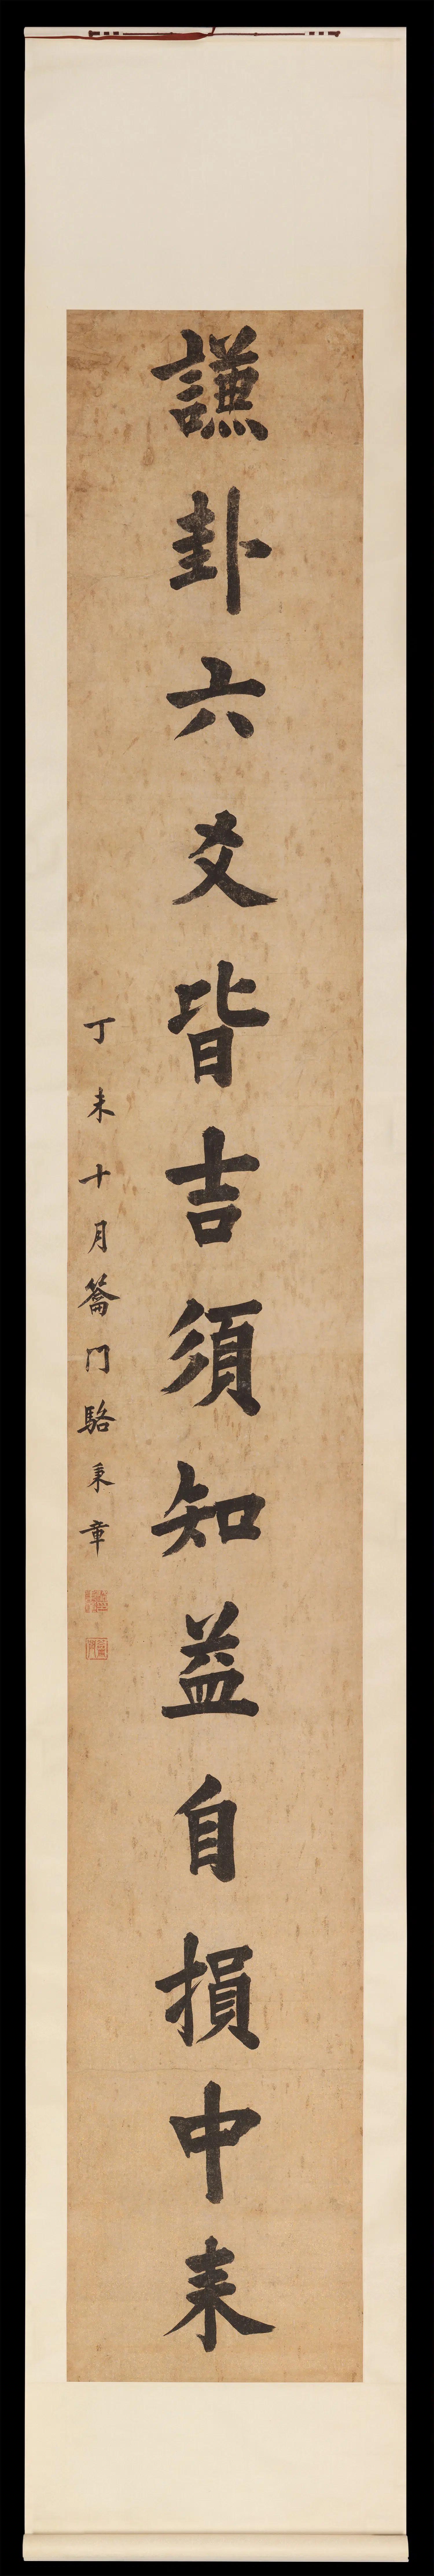 謙卦六爻皆吉須知益自損中来
丁未十月籥門駱秉章